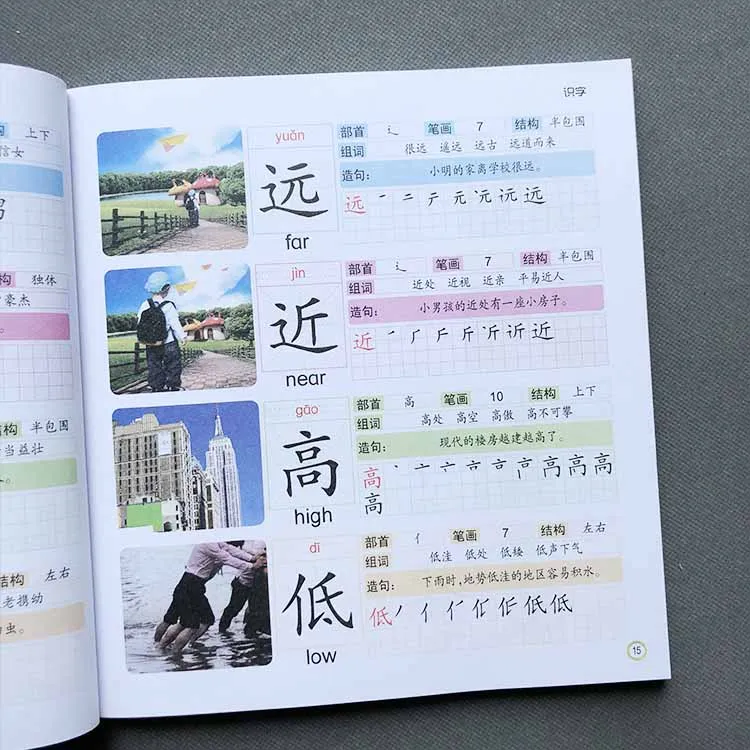 结构 上下
信女
结构 独体
豪杰
结构 半包围
当益壮
结构 左右
老携幼
虫。
识字
yuǎn
远
far
部首 辶 笔画 7 结构 半包围
组词 很远 遥远 远古 远道而来
造句: 小明的家离学校很远。
远
jìn
近
near
部首 辶 笔画 7 结构 半包围
组词 近处 近视 近亲 平易近人
造句: 小男孩的近处有一座小房子。
近
gāo
高
high
部首 高 笔画 10 结构 上下
组词 高处 高空 高傲 高不可攀
造句: 现代的楼房越建越高了。
高
高
dī
低
low
部首 亻 笔画 7 结构 左右
组词 低洼 低处 低矮 低声下气
造句: 下雨时,地势低洼的地区容易积水。
低
15